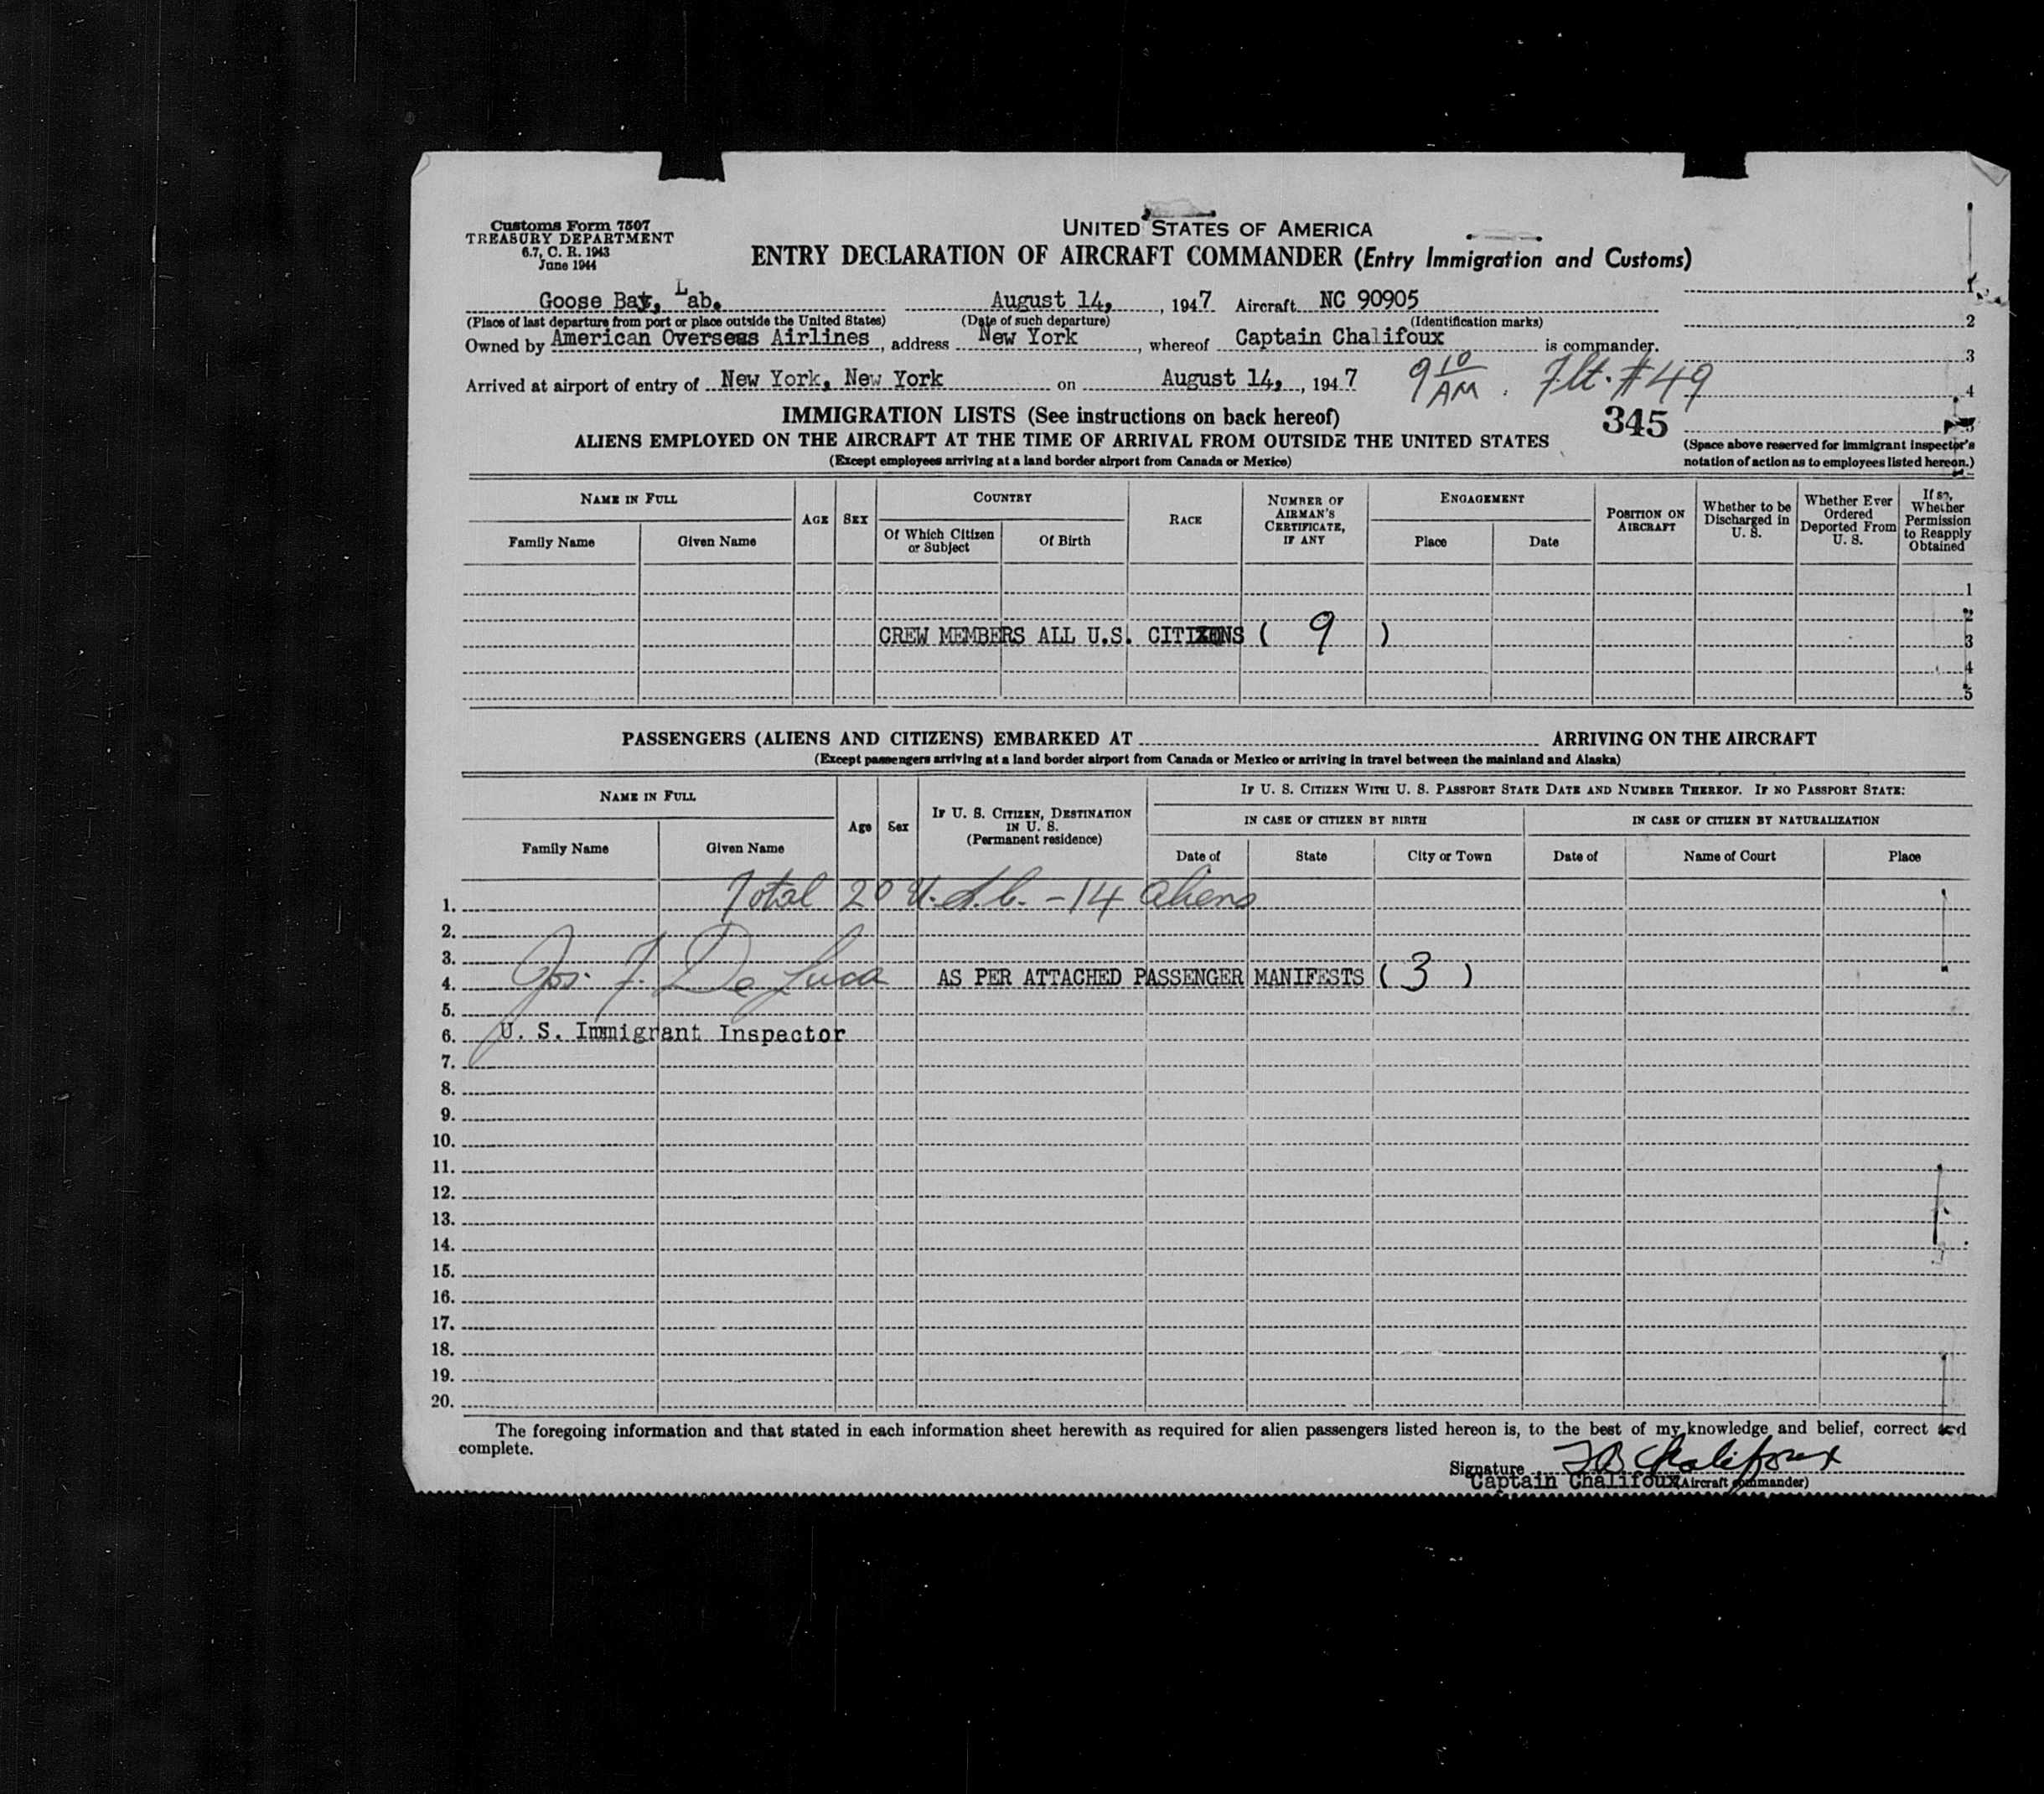 Customs Form 7507
TREASURY DEPARTMENT
6.7, C. R. 1943
June 1944
UNITED STATES OF AMERICA
ENTRY DECLARATION OF AIRCRAFT COMMANDER (Entry Immigration and Customs)
Goose Bay, Lab. August 14, , 1947 Aircraft NC 90905
(Place of last departure from port or place outside the United States) (Date of such departure) (Identification marks)
Owned by American Overseas Airlines , address New York , whereof Captain Chalifoux is commander.
Arrived at airport of entry of New York, New York on August 14, , 1947 9 10 AM. Flt. #49
1
2
3
4
5
IMMIGRATION LISTS (See instructions on back hereof) 345
ALIENS EMPLOYED ON THE AIRCRAFT AT THE TIME OF ARRIVAL FROM OUTSIDE THE UNITED STATES
(Except employees arriving at a land border airport from Canada or Mexico)
(Space above reserved for immigrant inspector's
notation of action as to employees listed hereon.)
NAME IN FULL
Family Name Given Name
AGE SEX
COUNTRY
Of Which Citizen or Subject Of Birth
RACE
NUMBER OF AIRMAN'S CERTIFICATE, IF ANY
ENGAGEMENT
Place Date
POSITION ON AIRCRAFT
Whether to be Discharged in U. S.
Whether Ever Ordered Deported From U. S.
If so, Whether Permission to Reapply Obtained
1
2
CREW MEMBERS ALL U.S. CITIZENS ( 9 ) 3
4
5
PASSENGERS (ALIENS AND CITIZENS) EMBARKED AT ARRIVING ON THE AIRCRAFT
(Except passengers arriving at a land border airport from Canada or Mexico or arriving in travel between the mainland and Alaska)
NAME IN FULL
Family Name Given Name
Age Sex
IF U. S. CITIZEN, DESTINATION IN U. S.
(Permanent residence)
IF U. S. CITIZEN WITH U. S. PASSPORT STATE DATE AND NUMBER THEREOF. IF NO PASSPORT STATE:
IN CASE OF CITIZEN BY BIRTH IN CASE OF CITIZEN BY NATURALIZATION
Date of State City or Town Date of Name of Court Place
1. Total 20 U.S.C. - 14 aliens
2.
3.
4. Jos. F. De Luca AS PER ATTACHED PASSENGER MANIFESTS ( 3 )
5.
6. U. S. Immigrant Inspector
7.
8.
9.
10.
11.
12.
13.
14.
15.
16.
17.
18.
19.
20.
The foregoing information and that stated in each information sheet herewith as required for alien passengers listed hereon is, to the best of my knowledge and belief, correct and
complete.
Signature Chalifoux
Captain Chalifoux (Aircraft commander)